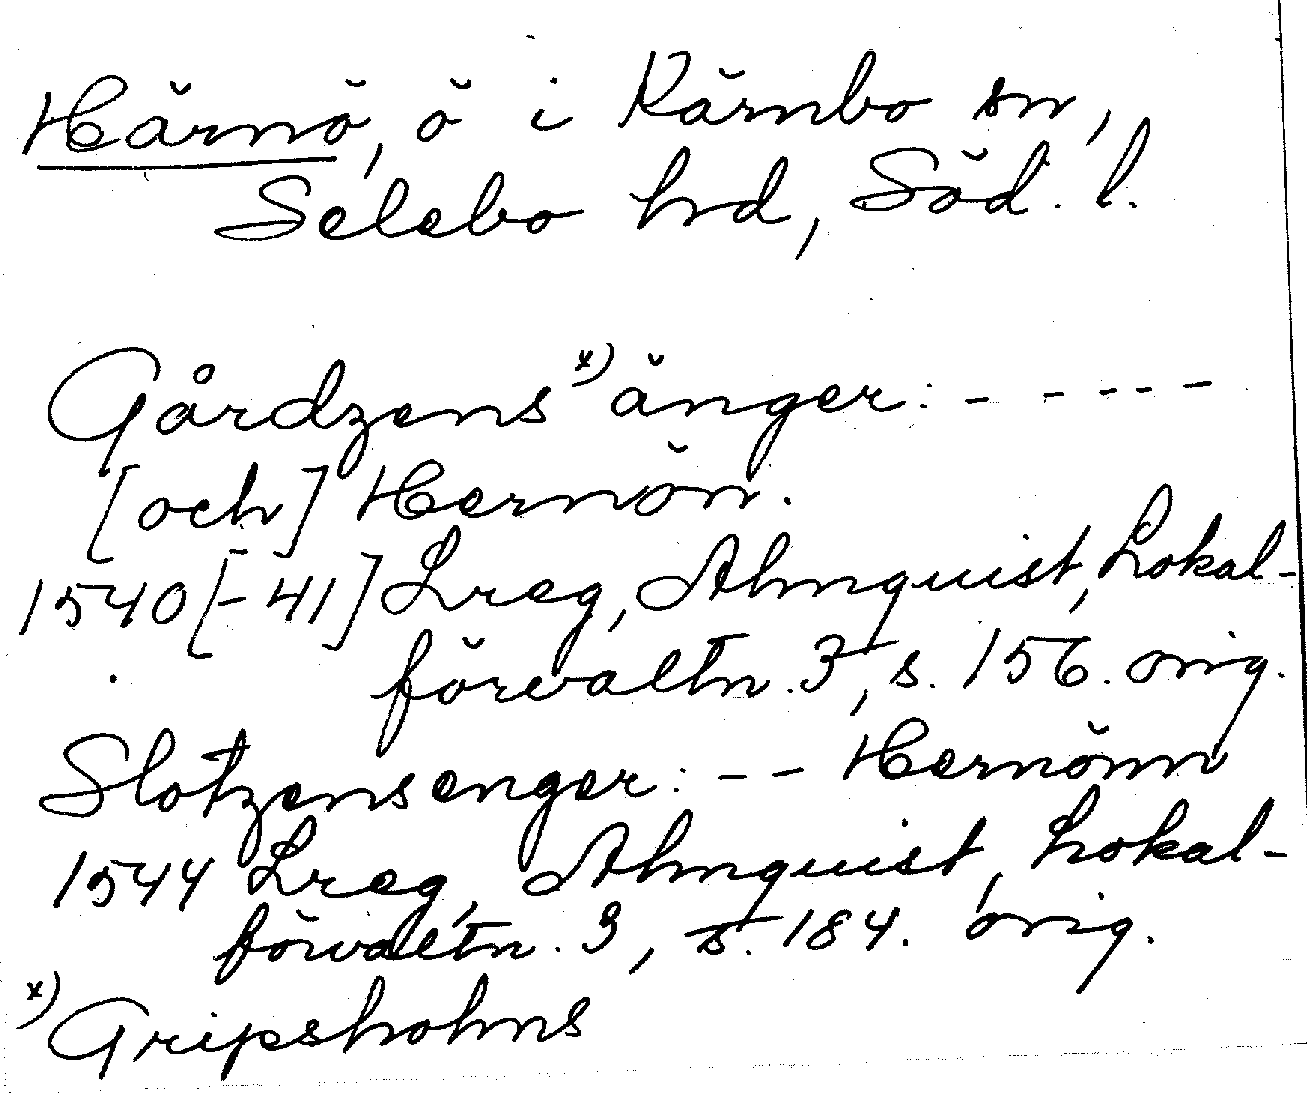 Härnö, ö i Kärnbo sn,
Selebo hrd, Söd. l.
Gårdzens x) änger: - - - - -
[och] Hernön.
1540[-41] Lreg, Almquist, Lokal-
förvaltn. 3, s. 156. orig.
Slotzens enger: - - Hernönn
1544 Lreg, Almquist, Lokal-
förvaltn. 3, s. 184. orig.
x) Gripsholms